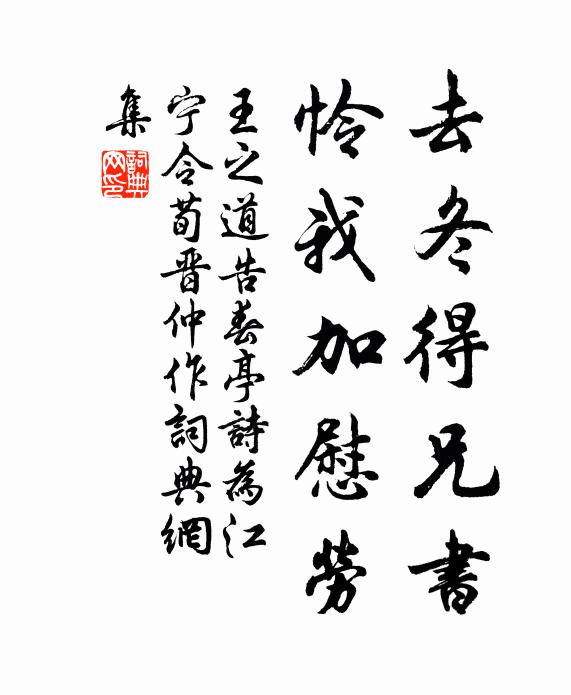 去冬得兄書
怜我加慰勞
王之道告春亭詩為江
宁令荀晋仲作詞典網
集
詞典網印